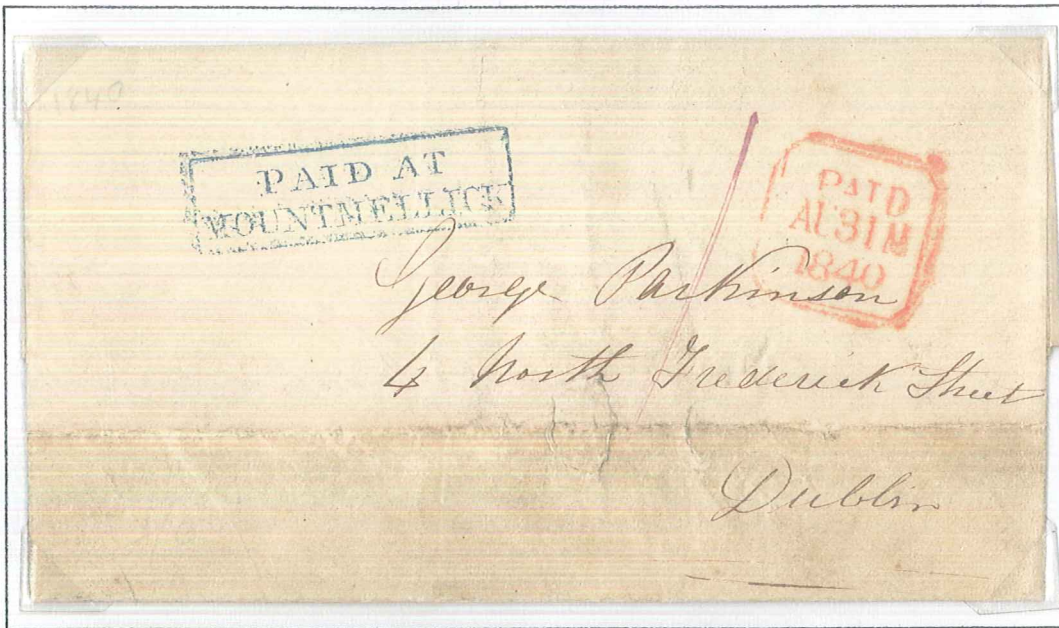 1840
PAID AT
MOUNTMELLICK
PAID
AU 31 M
1840
George Parkinson
4 North Frederick Street
Dublin